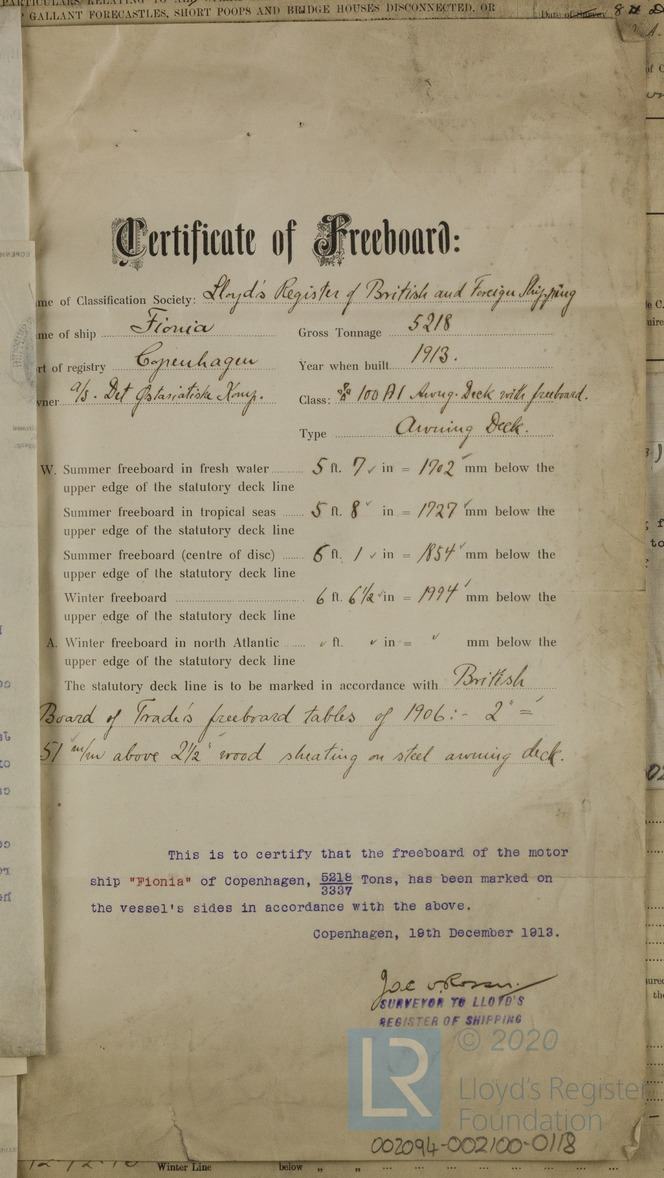 GALLANT FORECASTLES, SHORT POOPS AND BRIDGE HOUSES DISCONNECTED, OR
Certificate of Freeboard:
me of Classification Society: Lloyd's Register of British and Foreign Shipping
me of ship Fionia Gross Tonnage 5218
rt of registry Copenhagen Year when built 1913.
wner A/S. Det Østasiatiske Komp. Class: 100 A1 Awng. Deck with freeboard.
Type Awning Deck.
W. Summer freeboard in fresh water 5 ft. 7 in = 1702 mm below the
upper edge of the statutory deck line
Summer freeboard in tropical seas 5 ft. 8 in = 1727 mm below the
upper edge of the statutory deck line
Summer freeboard (centre of disc) 6 ft. 1 in = 1854 mm below the
upper edge of the statutory deck line
Winter freeboard 6 ft. 6 1/2 in = 1994 mm below the
upper edge of the statutory deck line
A. Winter freeboard in north Atlantic ft. in = mm below the
upper edge of the statutory deck line
The statutory deck line is to be marked in accordance with British
Board of Trade's freeboard tables of 1906:- 2" =
51 m/m above 2 1/2" wood sheating on steel awning deck.
This is to certify that the freeboard of the motor
ship "Fionia" of Copenhagen, 5218/3337 Tons, has been marked on
the vessel's sides in accordance with the above.
Copenhagen, 19th December 1913.
SURVEYOR TO LLOYD'S
REGISTER OF SHIPPING
LR © 2020
Lloyd's Register
Foundation
002094-002100-0118
Winter Line below " "